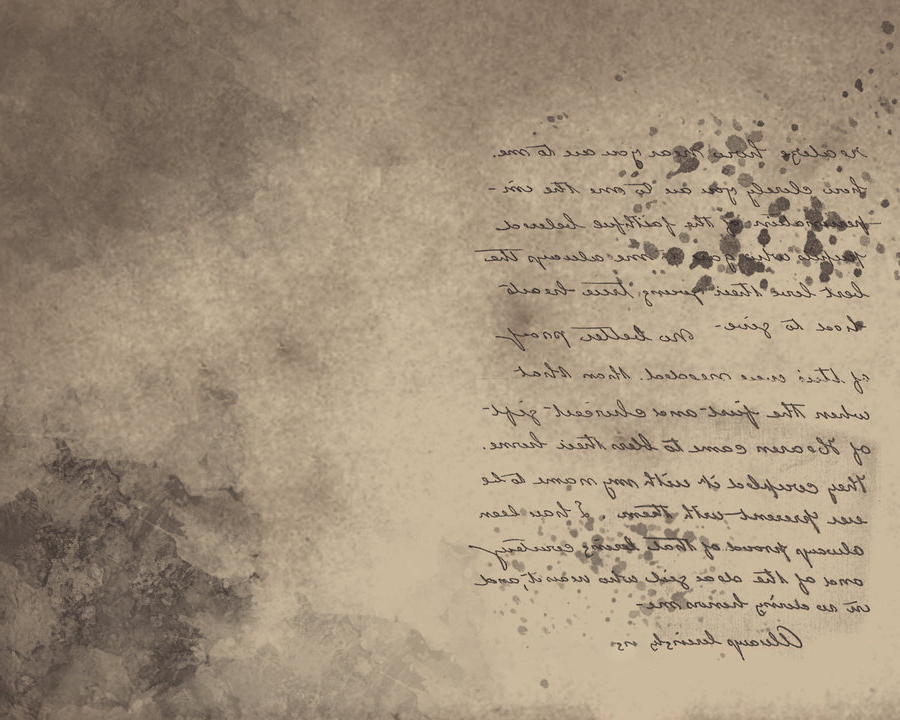 realize how near you are to me.
how closely you are to me the in-
of the faithful beloved
people who me always the
best love their young true hearts
had to give - no better proof
of this were needed than that
when the first and choicest gift
of Heaven came to bless their home.
they coupled it with my name to be
ever present with them. I have been
always proud of that loving
and of the dear girl who and
in so doing honors me-
Always lovingly